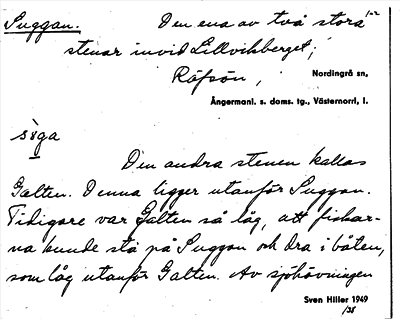 Suggan. Den ena av två stora
stenar invid Lillviksberget,
Räfsön, Nordingrå sn,
Ångermanl. s. doms. tg., Västernorrl. l.
Den andra stenen kallas
Galten. Denna ligger utanför Suggan.
Tidigare var Galten så låg, att fiskar-
na kunde stå på Suggan och dra i båten,
som låg utanför Galten. Av sjöhövningen
Sven Hiller 1949
/38